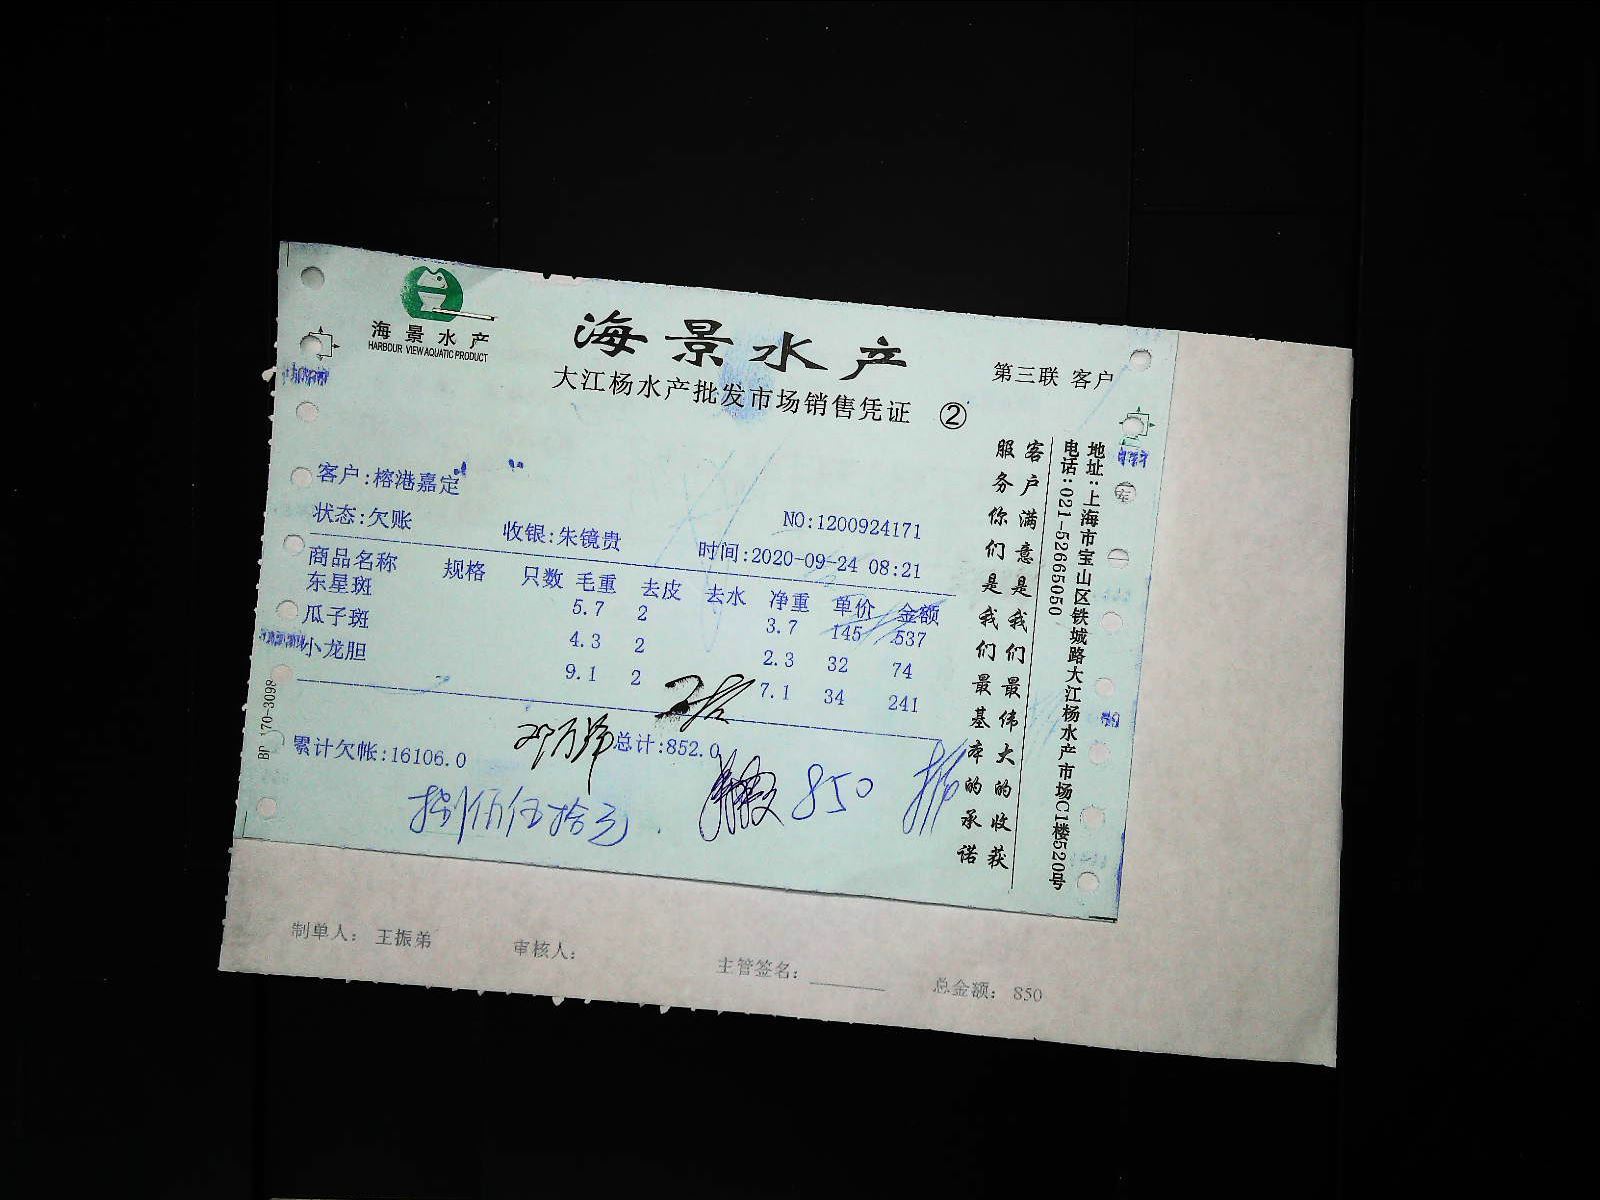 海景水产
HARBOUR VIEW AQUATIC PRODUCT
海景水产
大江杨水产批发市场销售凭证 ②
第三联 客户
客户:榕港嘉定
状态:欠账 收银:朱镜贵
NO:1200924171
时间:2020-09-24 08:21
商品名称 规格 只数 毛重 去皮 去水 净重 单价 金额
东星斑 5.7 2 3.7 145 537
瓜子斑 4.3 2 2.3 32 74
小龙胆 9.1 2 7.1 34 241
累计欠帐:16106.0 总计:852.0
捌佰伍拾元
850
客户满意是我们最伟大的收获
服务你们是我们最基本的承诺
地址:上海市宝山区铁城路大江杨水产市场C1楼520号
电话:021-52665050
170-3098
制单人: 王振弟 审核人: 主管签名: 总金额: 850